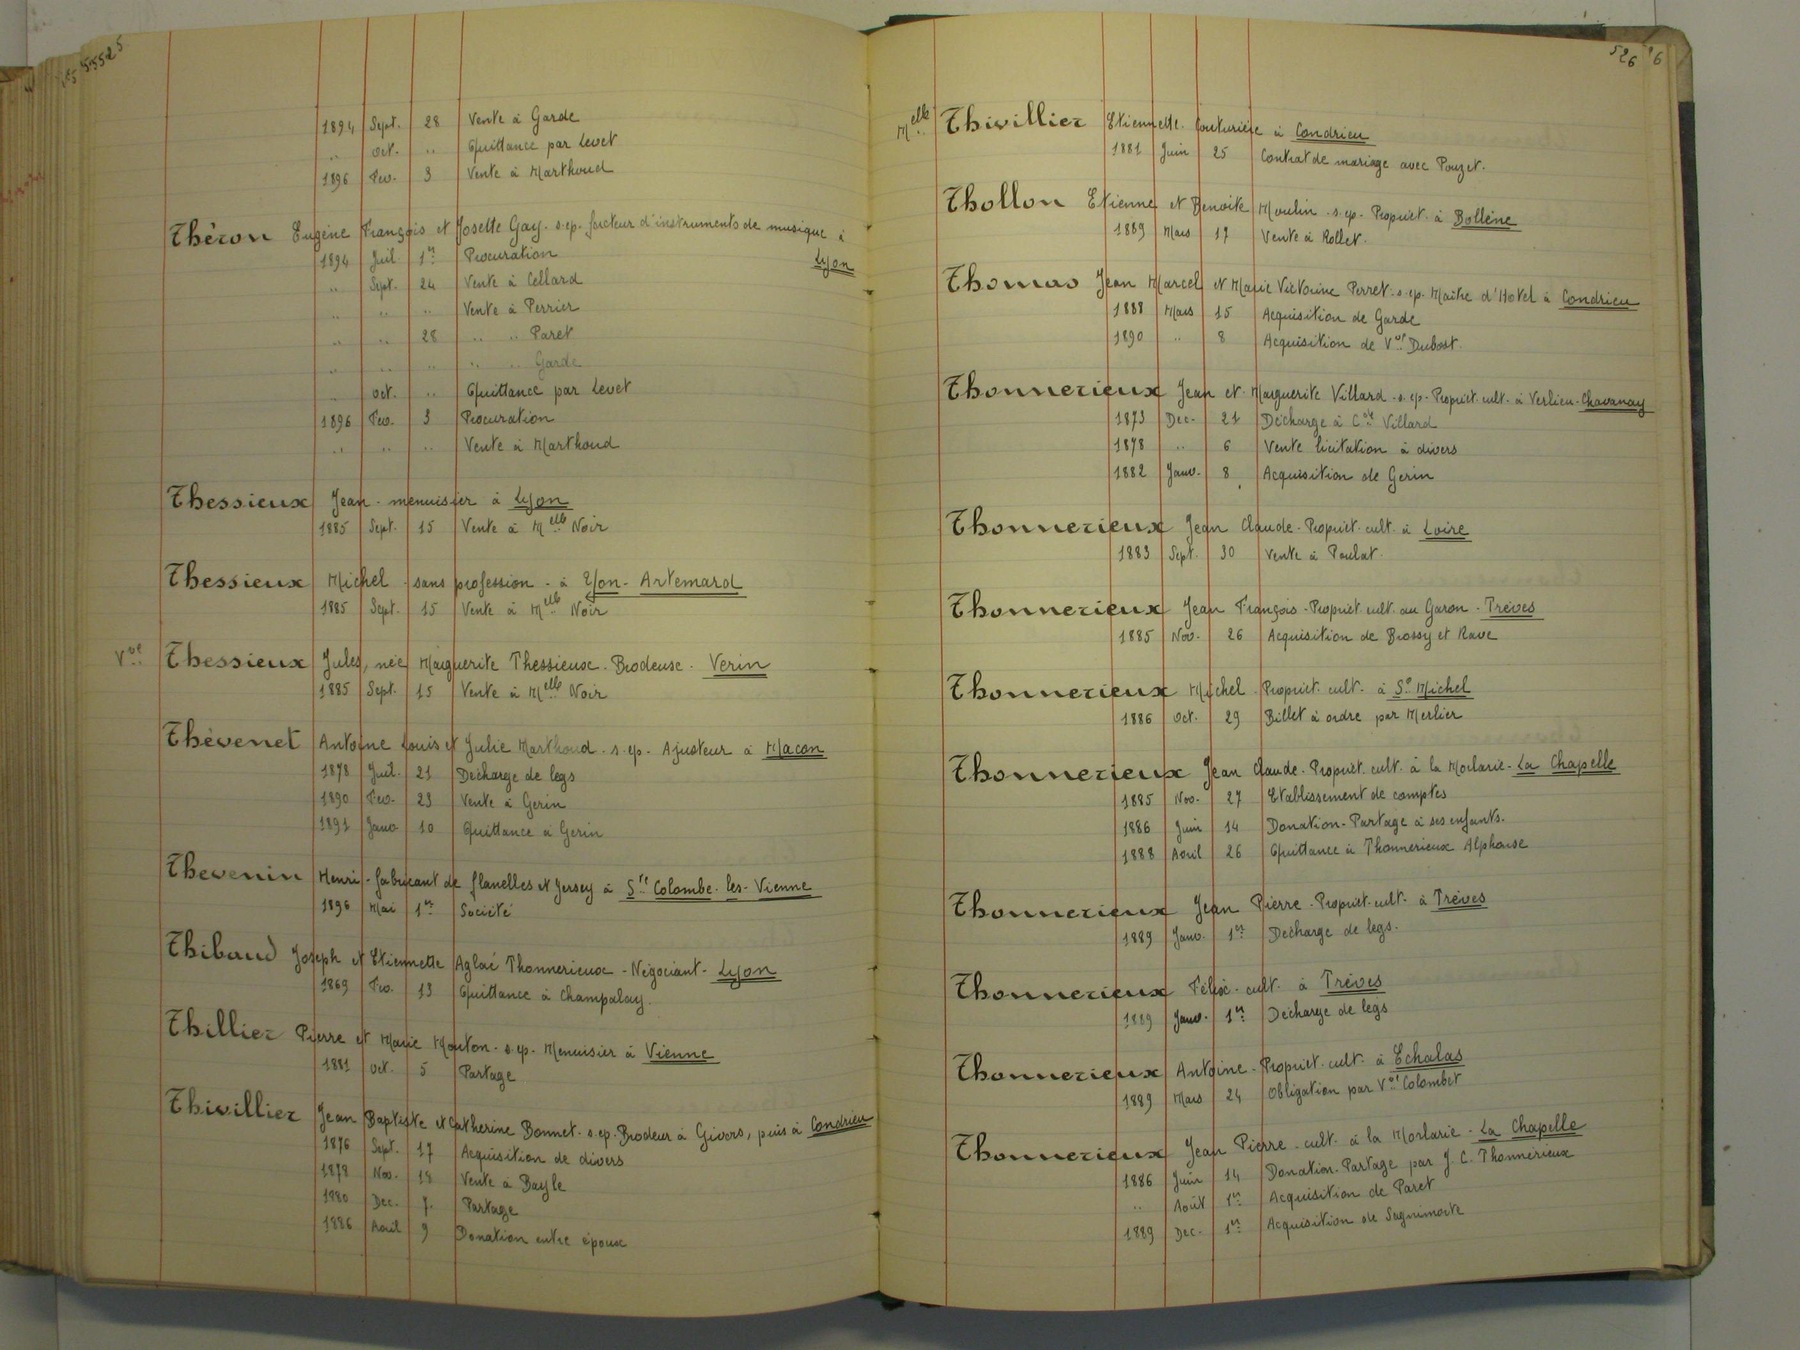 1894 Sept. 28 Vente à Garde
.. Oct. .. Quittance par Levet
1896 Fev. 3 Vente à Marthoud
Théron Eugène François et Josette Gay. s.ep. facteur d'instruments de musique à
Lyon
1894 Juil. 1er Procuration
.. Sept. 24 Vente à Cellard
.. .. .. Vente à Perrier
.. .. 28 .. .. Paret
.. .. .. .. .. Garde
.. Oct. .. Quittance par Levet
1896 Fev. 3 Procuration
.. .. .. Vente à Marthoud
Thessieux Jean - menuisier à Lyon
1885 Sept. 15 Vente à Melle Noir
Thessieux Michel - sans profession - à Yon - Artemard
1885 Sept. 15 Vente à Melle Noir
Vve Thessieux Jules, née Marguerite Thessieux. Brodeuse. Verin
1885 Sept. 15 Vente à Melle Noir
Thévenet Antoine Louis et Julie Marthoud. s.ep. Ajusteur à Macon
1878 Juil. 21 Décharge de legs
1890 Fev. 23 Vente à Gerin
1891 Janv. 10 Quittance à Gerin
Thevenin Henri - fabricant de flanelles et Jersey à Ste Colombe-les-Vienne
1896 Mai 1er Société
Thibaud Joseph et Etiennette Aglaé Thonnerieux - Négociant - Lyon
1869 Fev. 13 Quittance à Champalay.
Thillier Pierre et Marie Mouton. s.ep. Menuisier à Vienne
1881 Oct. 5 Partage
Thivillier Jean Baptiste et Catherine Bonnet. s.ep. Brodeur à Givors, puis à Condrieu
1876 Sept. 17 Acquisition de divers
1878 Nov. 18 Vente à Bayle
1880 Dec. 7. Partage
1886 Avril 9 Donation entre époux
526
Melle Thivillier Etiennette. Couturière à Condrieu
1881 Juin 25 Contrat de mariage avec Pouzet.
Thollon Etienne et Benoite Moulin. s.ep. Propriet. à Bollène
1889 Mars 17 Vente à Rollet.
Thomas Jean Marcel et Marie Victorine Perret. s.ep. Maître d'Hotel à Condrieu
1888 Mars 15 Acquisition de Garde
1890 .. 8 Acquisition de Vve Dubost.
Thonnerieux Jean et Marguerite Villard. s.ep. Propriet. cult. à Verlieu-Chavanay
1873 Dec. 21 Décharge à Villard
1878 .. 6 Vente licitation à divers
1882 Janv. 8 Acquisition de Gerin
Thonnerieux Jean Claude - Propriet. cult. à Loire
1883 Sept. 30 Vente à Poulat.
Thonnerieux Jean François - Propriet. cult. au Garon - Trèves
1885 Nov. 26 Acquisition de Brossy et Rave
Thonnerieux Michel Propriet. cult. à St Michel
1886 Oct. 29 Billet à ordre par Merlier
Thonnerieux Jean Claude - Propriet. cult. à la Morlarie - La Chapelle
1885 Nov. 27 Etablissement de comptes
1886 Juin 14 Donation-Partage à ses enfants.
1888 Avril 26 Quittance à Thonnerieux Alphonse
Thonnerieux Jean Pierre - Propriet. cult. à Trèves
1889 Janv. 1er Décharge de legs.
Thonnerieux Félix - cult. à Trèves
1889 Janv. 1er Décharge de legs
Thonnerieux Antoine - Propriet. cult. à Echalas
1889 Mars 24 Obligation par Vve Colombet
Thonnerieux Jean Pierre - cult. à la Morlarie - La Chapelle
1886 Juin 14 Donation-Partage par J. C. Thonnerieux
.. Août 1er Acquisition de Paret
1889 Dec. 1er Acquisition de Saguimorte